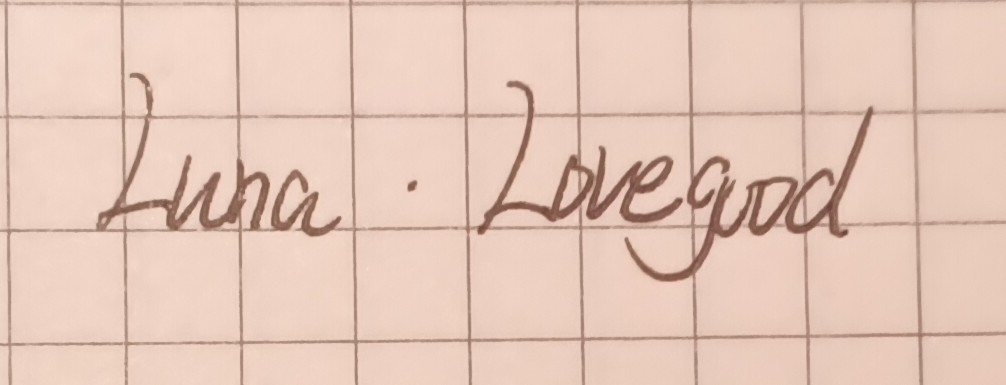 Luna · Lovegood